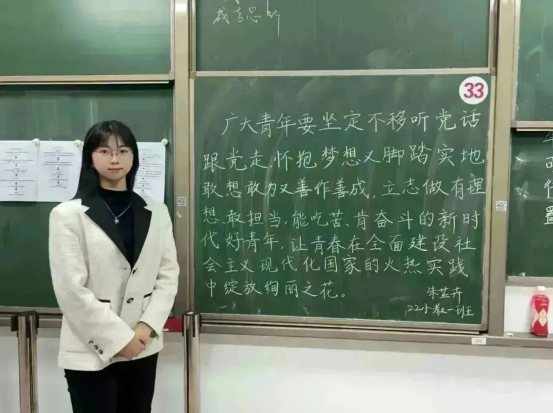 33
广大青年要坚定不移听党话
跟党走,怀抱梦想又脚踏实地
敢想敢为又善作善成,立志做有理
想、敢担当、能吃苦、肯奋斗的新时
代好青年,让青春在全面建设社
会主义现代化国家的火热实践
中绽放绚丽之花。
22小教一班